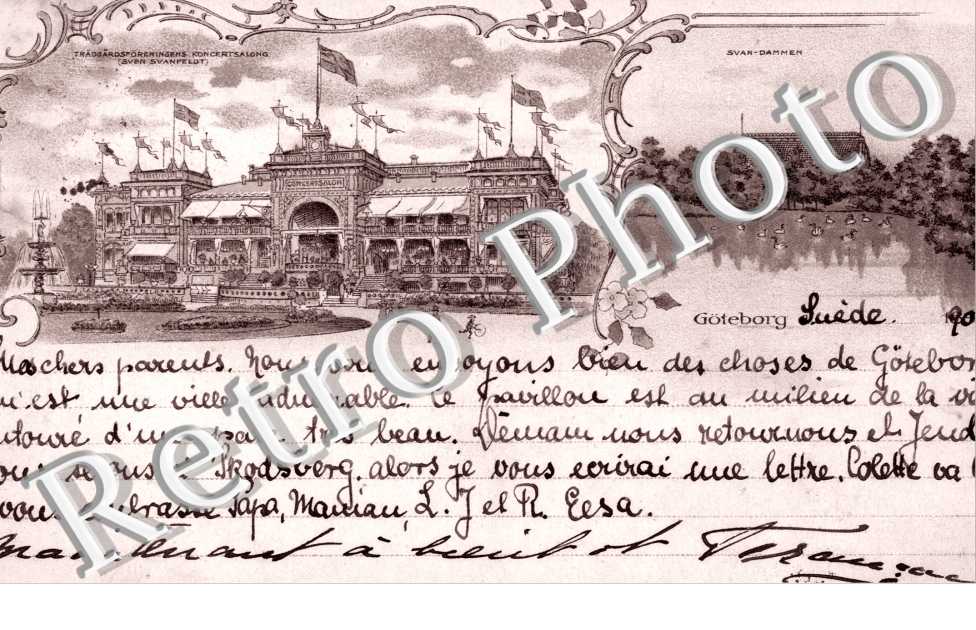 TRÄDGÅRDSFÖRENINGENS KONCERTSALONG
(SVEN SVANFELDT)
SVAN-DAMMEN
CONCERTSALON
Retro Photo
Göteborg Suède. 190
chers parents. Nous vous envoyons bien des choses de Götebor
qu'est une ville admirable. Le pavillon est au milieu de la
entouré d'un parc très beau. Demain nous retournons et Jeud
nous serons à Skodsberg alors je vous ecrirai une lettre. Colette va
vous embrasse Papa, Maman, L. J et R. Eesa.
à bientot